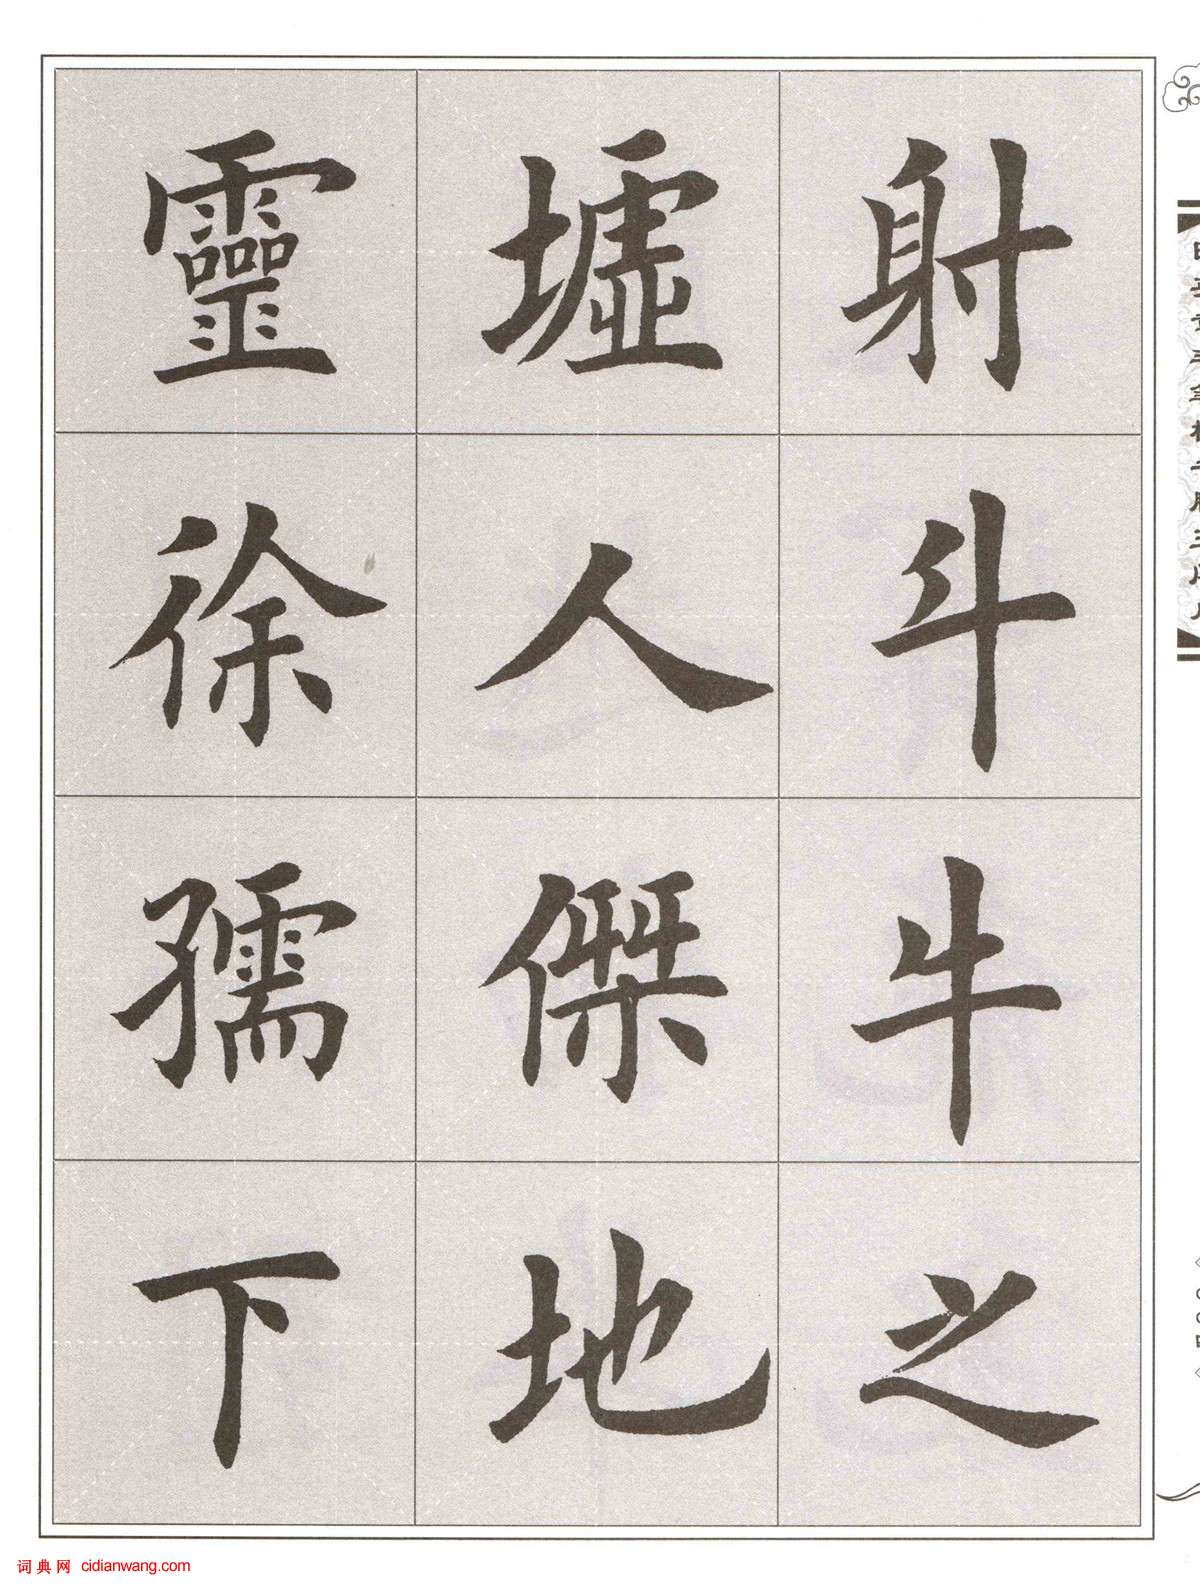 射斗牛之
墟人傑地
靈徐孺下
词典网 cidianwang.com